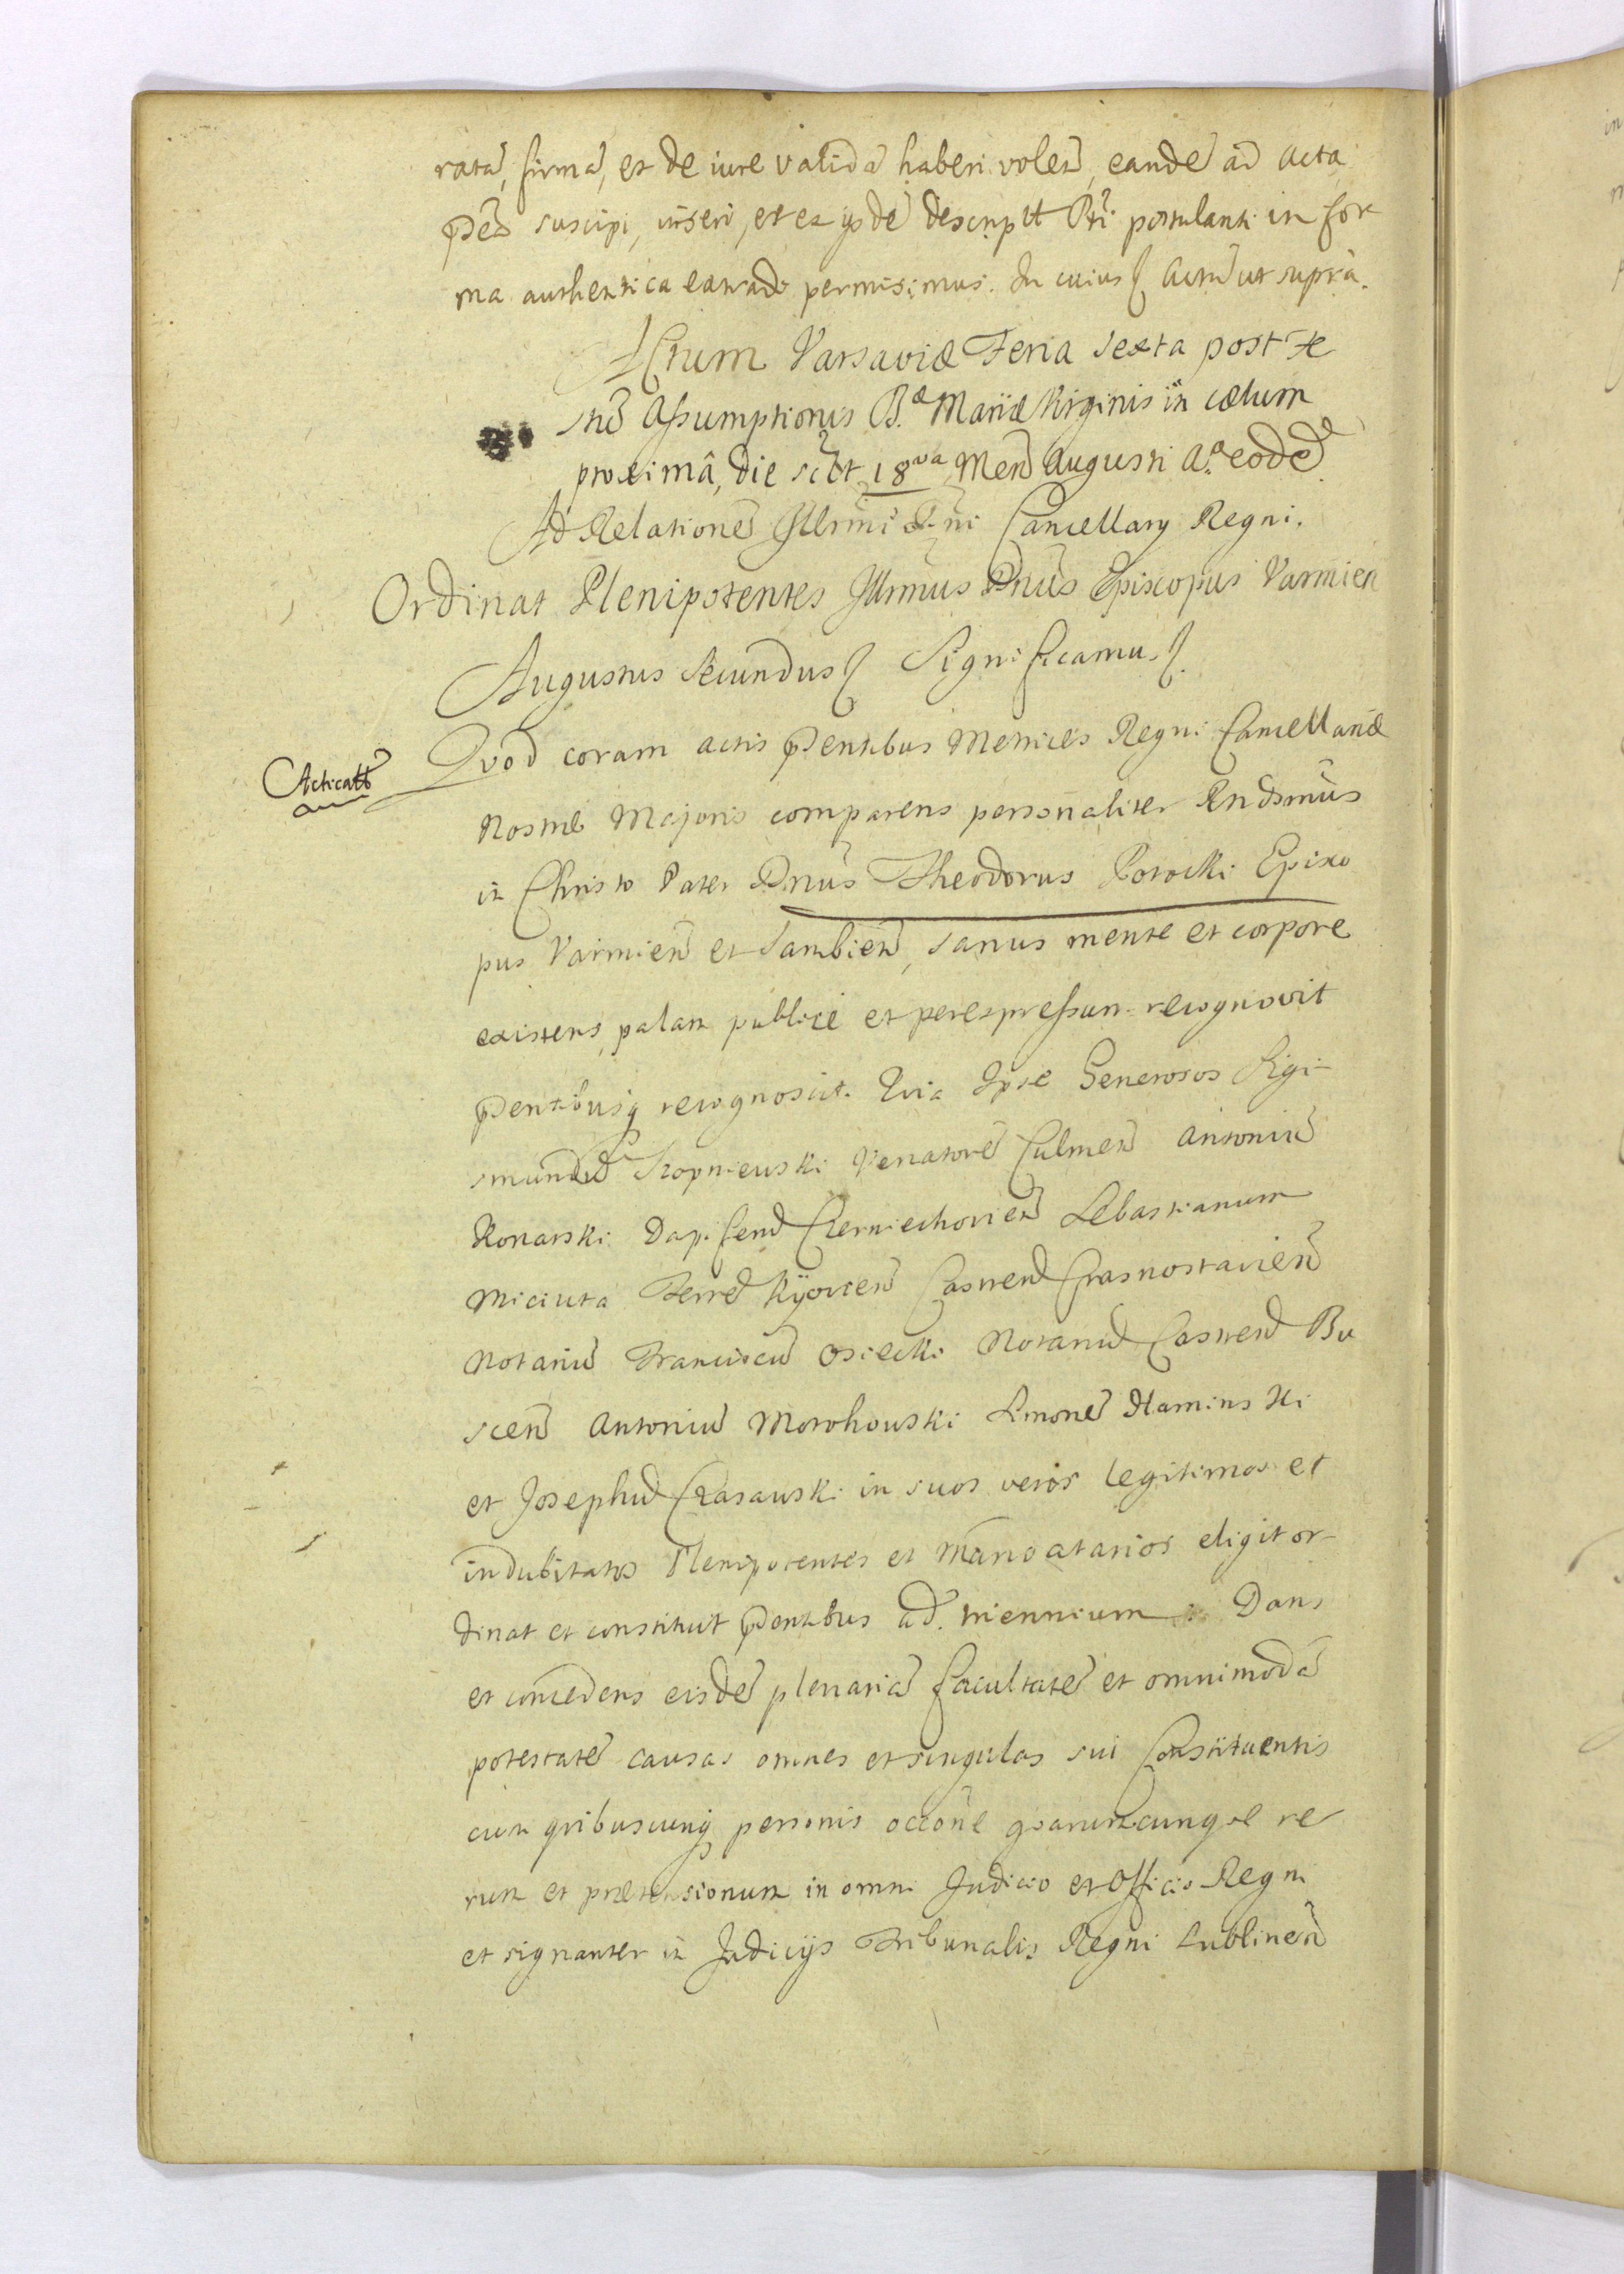 ratã, firmã, et de iure validã haberi voleñ, eandẽ ad Acta
p̃ñs suscipi, inseri, et ex ijsdẽ descriptt Pti postulanti in for
ma authentica extradi permisimus. In cuius Actũ ut suprà.
Actum Varsaviæ Feria Sexta post Fe
stũ Assumptionis B.æ Mariæ Virginis in cælum
proximâ, die scilt 18va Meñ Augusti A.o eodẽ.
Ad Relationẽ Illrmi Dñi Cancellarÿ Regni.
Ordinat Plenipotentes Illrmus Dñus Episcopus Varmien
Augustus Secundus Significamus
Acticatt
Quod coram actis p̃entibus Metrices Regni Cancellariæ
Nostræ Majoris comparens personaliter Rndsmũs
in Christo Pater Dñus Theodorus Potocki Episco
pus Varmieñ et Sambieñ, sanus mente et corpore
existens, palam publicè et per expressum recognovit
p̃entibusq recognoscit. Quia Ipse Generosos Sigi-
smundũ Kropiewski Venatorẽ Culmeñ Antoniũ
Konarski Dapiferũ Czerniechovieñ Sebastianum
Miciuta Terrẽ Kÿovieñ Castreñ Crasnostavieñ
Notariũ Franciscũ Osiecki Notariũ Castreñ Bu
sceñ Antoniũ Morohowski Simonẽ Kaminski
et Josephũ Czasawski in suos veros legitimos et
indubitatos Plenipotentes et Mandatarios eligit or-
dinat et constituit p̃entibus ad triennium Dans
et concedens eisdẽ plenariã facultatẽ et omnimodã
potestatẽ causas omnes et singulas sui Constituentis
cum qvibuscunq personis occõne qvarumcunqve re
rum et prætensionum in omni Judicio et Officio Regni
et signanter in Judicijs Tribunalis Regni Lublineñ